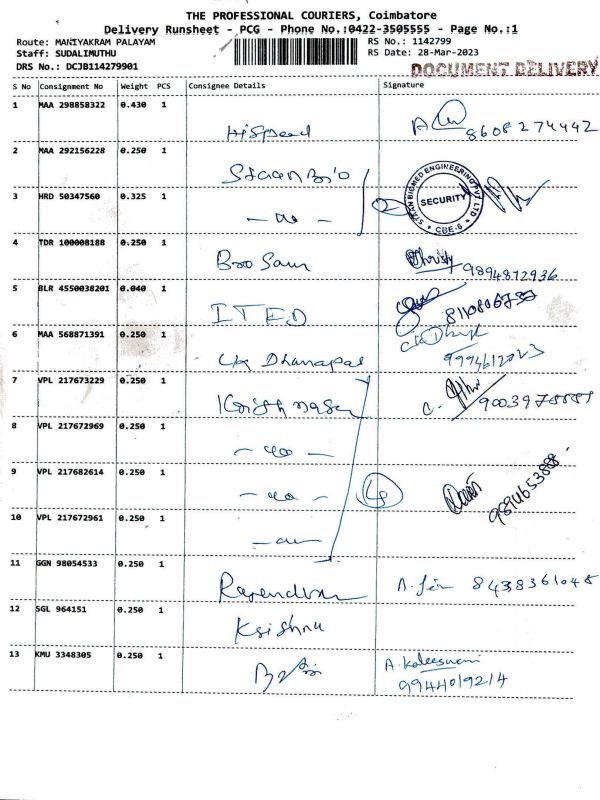 THE PROFESSIONAL COURIERS, Coimbatore
Delivery Runsheet - PCG - Phone No.:0422-3505555 - Page No.:1
Route: MANIYAKRAM PALAYAM RS No.: 1142799
Staff: SUDALIMUTHU RS Date: 28-Mar-2023
DRS No.: DCJB114279901
DOCUMENT DELIVERY
S No Consignment No Weight PCS Consignee Details Signature
1 MAA 298858322 0.430 1 HiSpeed 8608274442
2 MAA 292156228 0.250 1 Staan Bio
STAAN BIOMED ENGINEERING PVT LTD
SECURITY
CBE-6
3 HRD 50347560 0.325 1 2
4 TDR 100008188 0.250 1 Christy 9894812936
5 BLR 4550038201 0.040 1 ITED
6 MAA 568871391 0.250 1 CK Dhanapal 9994612023
7 VPL 217673229 0.250 1
8 VPL 217672969 0.250 1
9 VPL 217682614 0.250 1 4
10 VPL 217672961 0.250 1
11 GGN 98054533 0.250 1 Rajendran 8438361045
12 SGL 964151 0.250 1 Krishna
13 KMU 3348305 0.250 1 A. Kaleeswari
9944019214